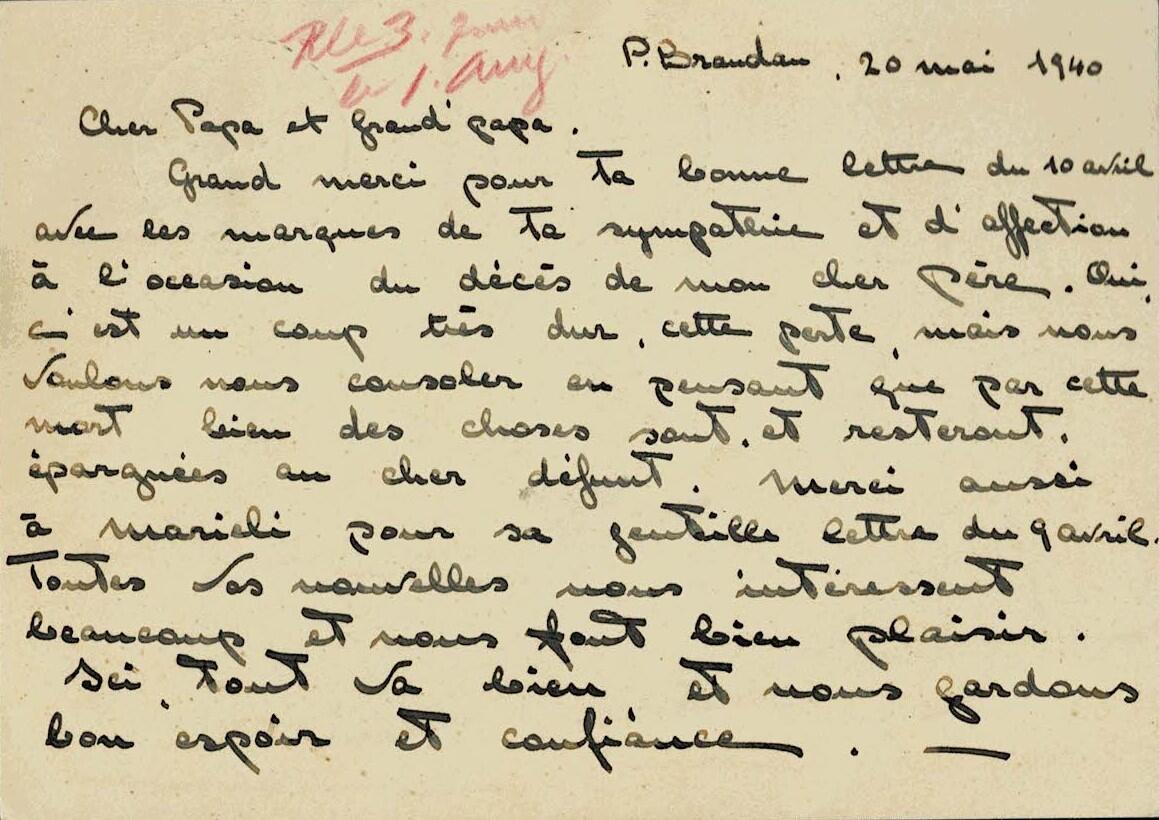 Rle 3. Juin
le 1. Aug.
P. Brandan, 20 mai 1940
Cher Papa et Grand'papa.
Grand merci pour ta bonne lettre du 10 avril
avec les marques de ta sympathie et d'affection
à l'occasion du décès de mon cher Père. Oui,
c'est un coup très dur, cette perte, mais nous
voulons nous consoler en pensant que par cette
mort bien des choses sont, et resteront,
épargnées au cher défunt. Merci aussi
à Marieli pour sa gentille lettre du 9 avril.
Toutes vos nouvelles nous intéressent
beaucoup et nous font bien plaisir.
Ici, tout va bien et nous gardons
bon espoir et confiance. —